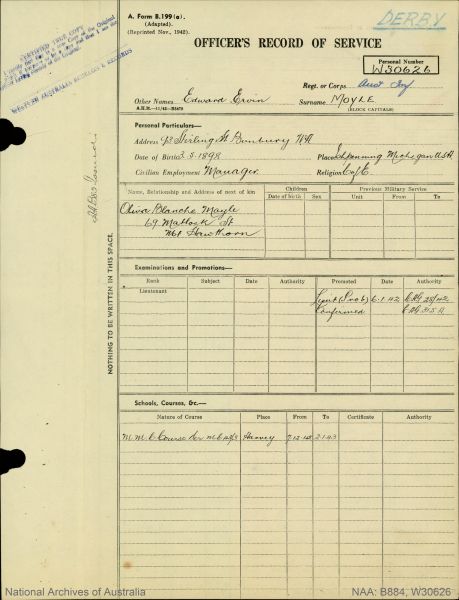 A. Form B.199 (a).
(Adapted).
(Reprinted Nov., 1942).
DERBY
OFFICER'S RECORD OF SERVICE
Personal Number
W30626
Regt. or Corps Aust Inf
Other Names Edward Ervin Surname MOYLE
(BLOCK CAPITALS)
Personal Particulars—
Address 93 Stirling St Bunbury WA
Date of Birth 2.5.1898 Place Ishpeming Michigan USA
Civilian Employment Manager Religion C of E
Name, Relationship and Address of next of kin Children Previous Military Service
Date of birth Sex Unit From To
Oliva Blanche Moyle
69 Matlock St
Mt Hawthorn
Examinations and Promotions—
Rank Subject Date Authority Promoted Date Authority
Lieutenant
Lieut (Prob) 6.1.42
Confirmed
Schools, Courses, &c.—
Nature of Course Place From To Certificate Authority
Harvey 7.12.42 2.1.43
NOTHING TO BE WRITTEN IN THIS SPACE.
CERTIFIED TRUE COPY
WESTERN AUSTRALIA ECHELON & RECORDS
National Archives of Australia
NAA: B884, W30626